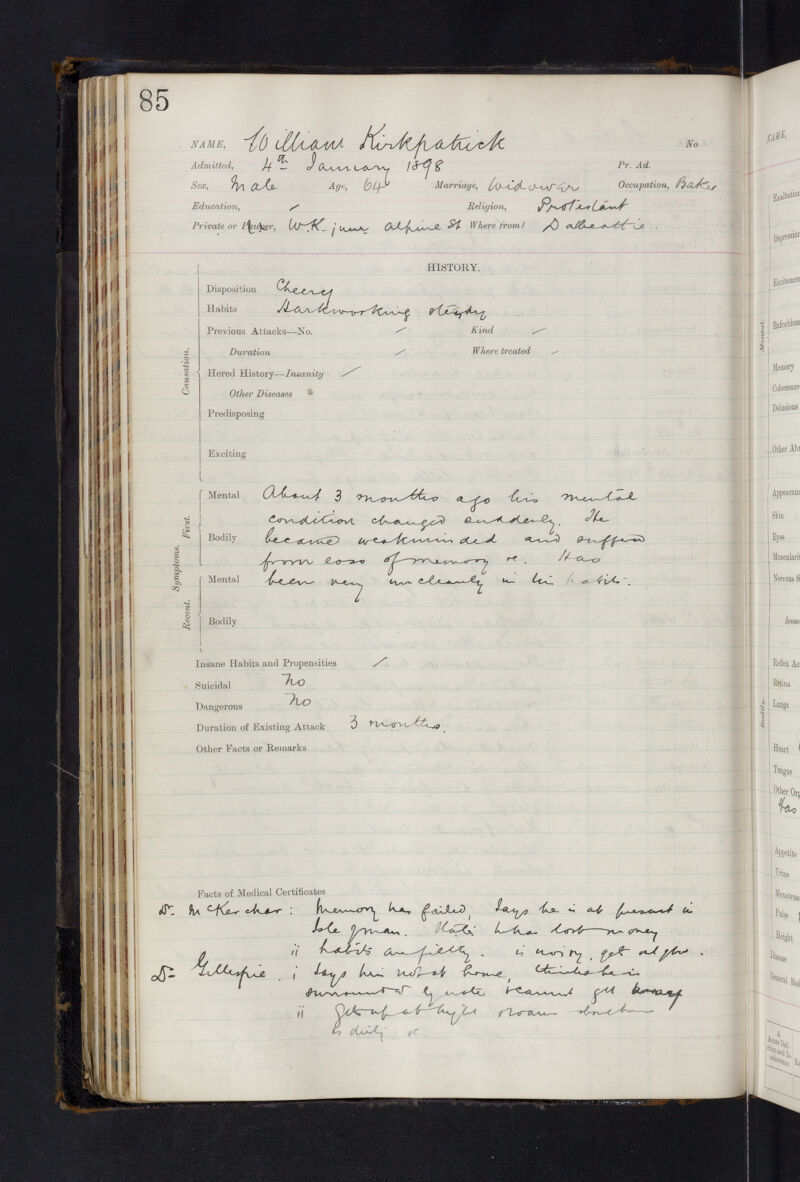 85
NAME, William Kirkpatrick No
Admitted, 4th January 1898 Pr. Ad.
Sex, Male Age, 64 Marriage, Widower Occupation, Baker
Education, / Religion, Protestant
Private or Pauper, W.K. junr Alpine St Where from? Dalbeattie.
HISTORY.
Causation.
Disposition Cheery
Habits Hardworking steady
Previous Attacks—No. / Kind /
Duration / Where treated /
Hered History—Insanity /
Other Diseases
Predisposing
Exciting
Symptoms.
First.
Mental About 3 months ago his mental
condition changed suddenly. He
Bodily became weakminded and suffered
from loss of memory &c. Has
Recent.
Mental been very uncleanly in his habits.
Bodily
Insane Habits and Propensities /
Suicidal No
Dangerous No
Duration of Existing Attack 3 months.
Other Facts or Remarks
Facts of Medical Certificates
Dr. McKerchar: Memory has failed, Says he is at present in
Isle of man. States he has lost money
ii habits are filthy. is noisy,
Dr Gillespie. i Says he is not at home, thinks he is
surrounded by & cannot get away
ii Gets up at night & roams about
is dirty &c
NAME,
Mental.
Exaltation
Depression
Excitement
Enfeeblem
Memory
Coherence
Delusions
Other Abn
Bodily.
Appearance
Skin
Eyes
Muscularit
Nervous S
Senso
Reflex Ac
Retina
Lungs
Heart
Tongue
Other Org
Has
Appetite
Urine
Menstrua
Pulse
Height
Disease
General Bod
A
Acute Deli-
rium and In-
coherence.